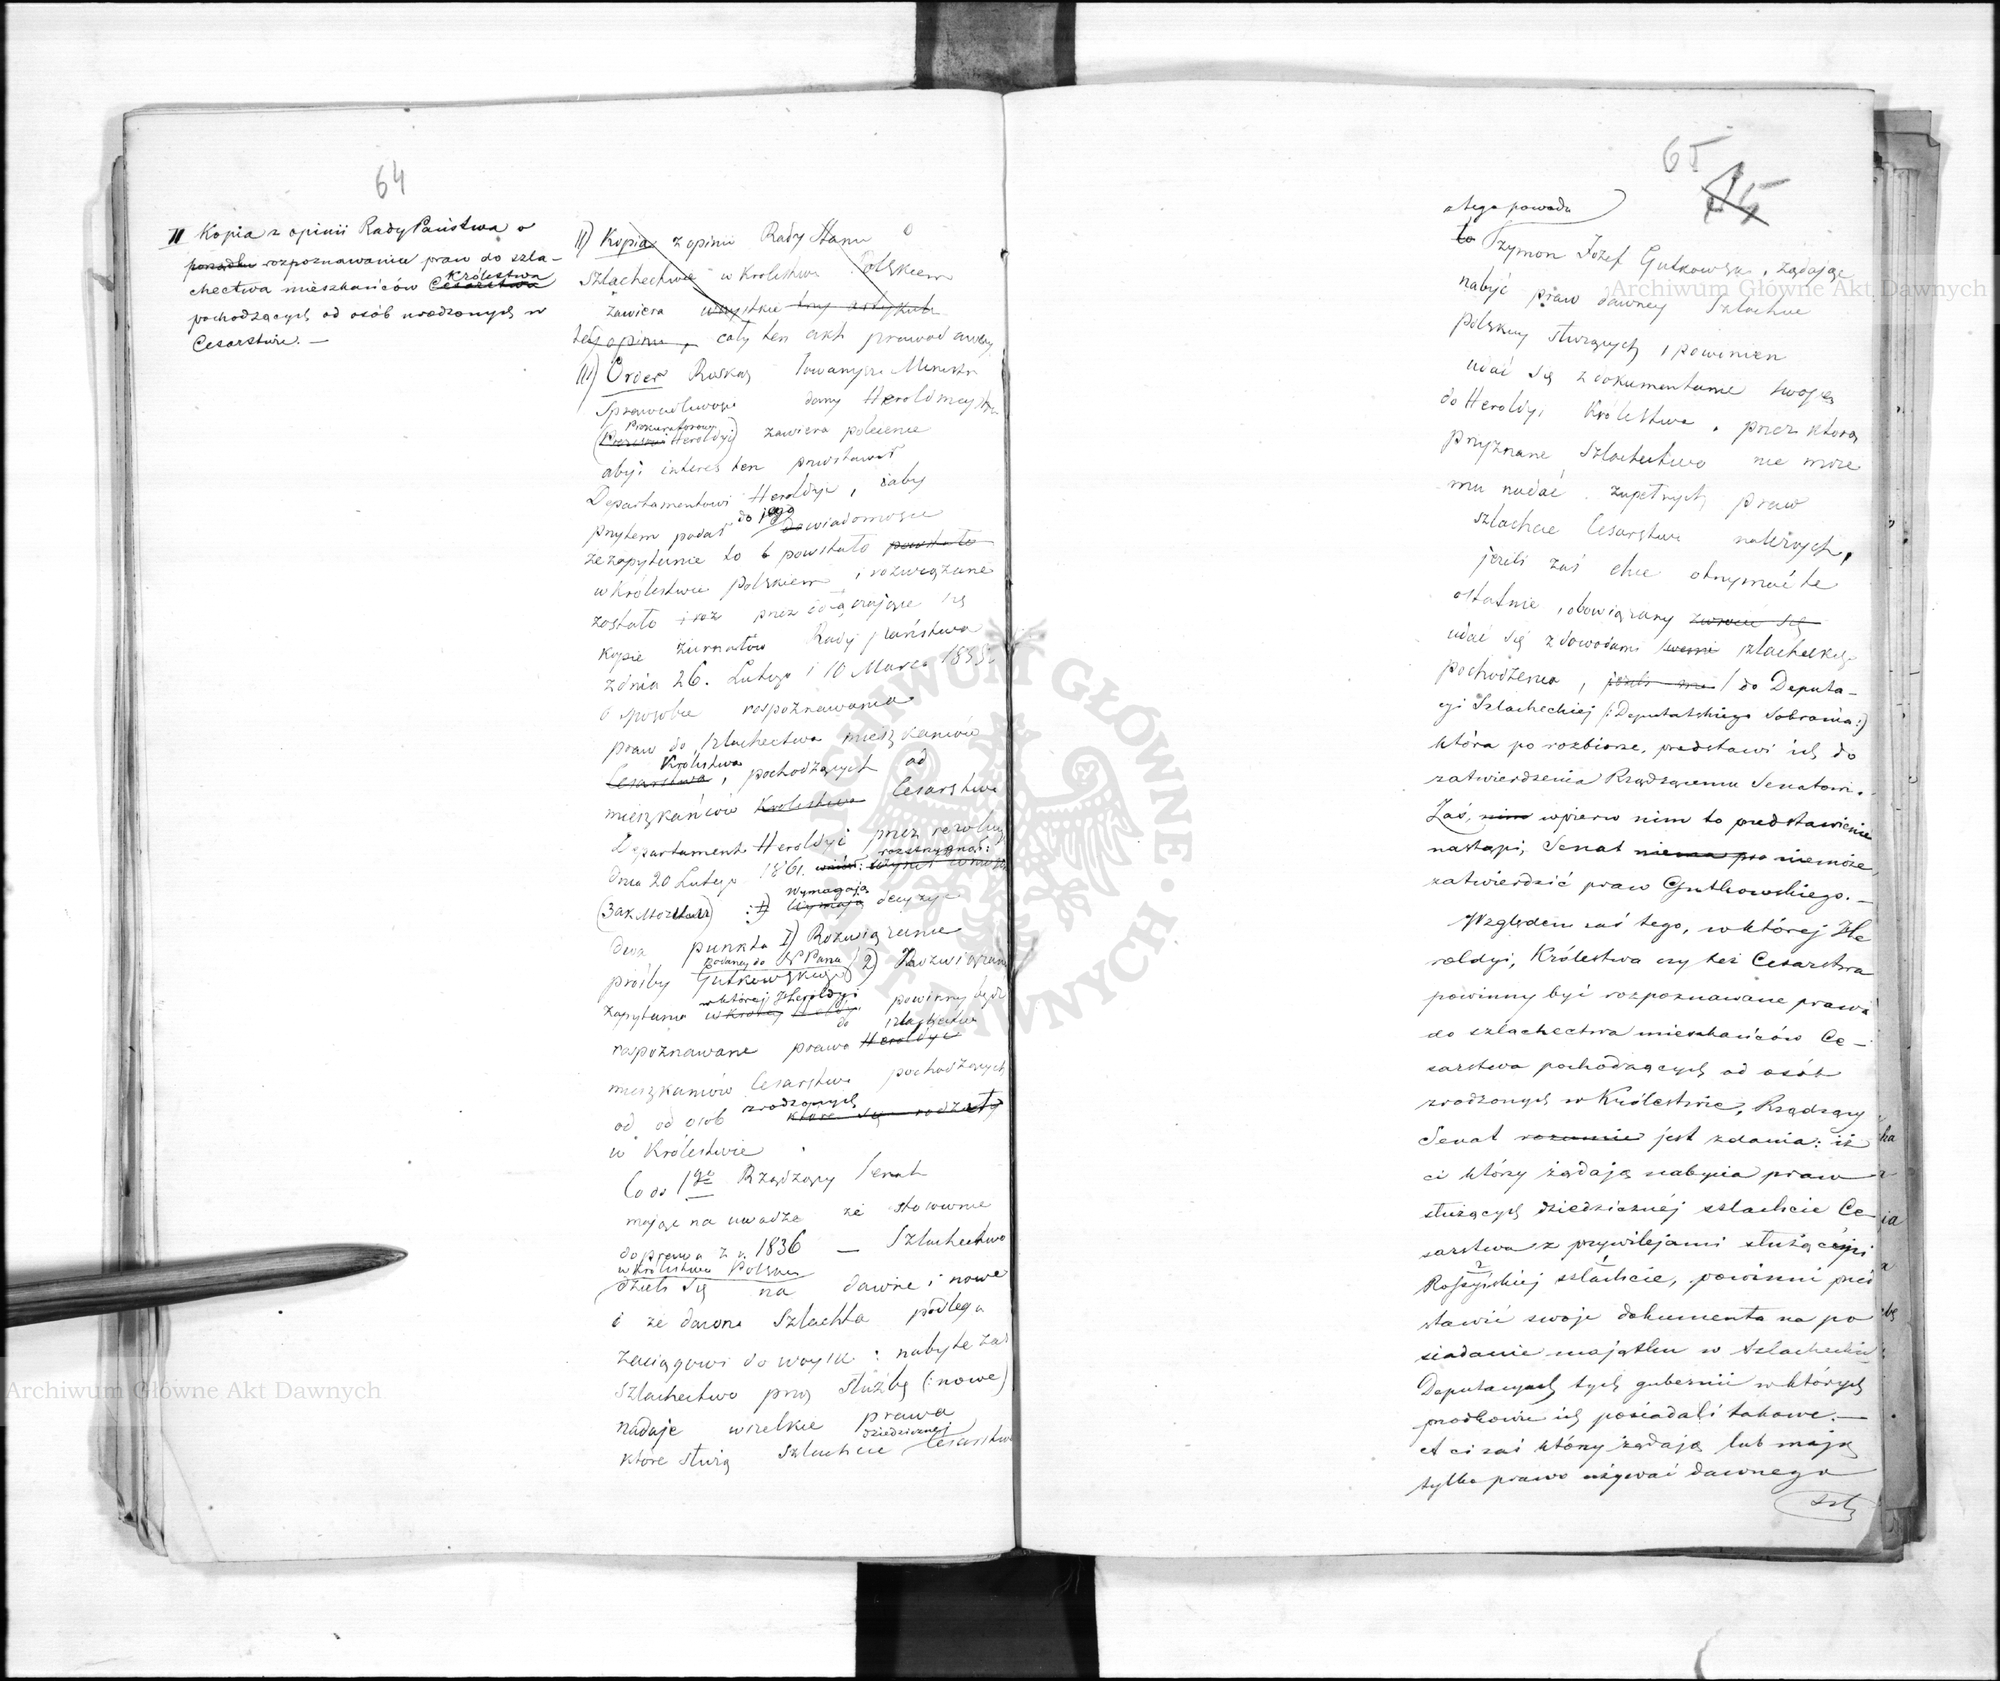 64
II Kopia z opinii Rady Państwa o
porządku rozpoznawania praw do szla-
chectwa mieszkańców Cesarstwa Królestwa
pochodzących od osób urodzonych w
Cesarstwie. —
II) Kopia z opinii Rady Stanu o
Szlachectwie w Krolestwie Polskiem
zawiera wszystkie trzy artykuły
tej opinii, cały ten akt prawodawczy
III) Order Ruskaz Towarzysza Ministra
Sprawiedliwości dany Heroldmaystrowi
Prokuratorowi
(Prezesowi Heroldyi) zawiera polecenie
aby: interes ten przedstawił
Departamentowi Heroldyi, iżaby
przytem podał do jego dowiadomości
że zapytanie to powstało powstało
w Królestwie Polskiem i rozwiązane
zostało przez
kopie żurnałów Rady Państwa
z dnia 26. Lutego i 10 Marca 1855.
o sposobie rospoznawania
praw do szlachectwa mieszkańców
Królestwa
Cesarstwa, pochodzących od
mieszkańców Krolestwa Cesarstwa
Departament Heroldyi przez rezolucyą
rozstrzygnął:
dnia 20 Lutego 1861.
wymagają
decyzyi
dwa punkta I) Rozwiązanie
podaney do N Pana
prośby Gutkowskiego 2) Rozwiązanie
w której Heroldyi
zapytania powinny być
do szlachectwa
rospoznawane prawa Heroldyi
mieszkańców Cesarstwa pochodzących
zrodzonych
od od osób które się rodzały
w Królestwie
Co do 1go Rządzący Senat
mając na uwadze że stosownie
do prawa z r. 1836 — Szlachectwo
w Królestwie Polskiem
dzieli się na dawne i nowe
i że dawna Szlachta podlega
zaciągowi do woysk: nabyte zaś
Szlachectwo przez służbę (: nowe)
nadaje wszelkie prawa
dziedzicznej
które służą Szlachcie Cesarstwa
65
z tego powodu
to Szymon Józef Gutkowski, żądając
nabyć praw dawney Szlachcie
Polskiej służących, powinien
udać się z dokumentami swojemi
do Heroldyi Królestwa, przez którą
przyznane Szlachectwo nie może
mu nadać zupełnych praw
szlachcie Cesarstwa należnych,
jeżeli zaś chce otrzymać te
ostatnie, obowiązany zwrócić się
udać się z dowodami swemi szlacheckiego
pochodzenia, do Deputa-
cyi Szlacheckiej (: Deputatskiego Sobrania :)
która po rozbiorze, przedstawi ich do
zatwierdzenia Rządzącemu Senatowi.
Zaś, nim wpierw nim to przedstawienie
nastąpi, Senat niema pra niemoże,
zatwierdzić praw Gutkowskiego. —
Względem zaś tego, w której He
roldyi, Królestwa czy też Cesarstwa
powinny być rozpoznawane prawa
do szlachectwa mieszkańców Ce-
sarstwa pochodzących od osób
zrodzonych w Królestwie, Rządzący
Senat rozumie jest zdania: iż
ci którzy żądają nabycia praw
służących dziedzicznéj szlachcie Ce-
sarstwa z przywilejami służącemi
Rossyiskiej szlachcie, powinni przed
stawić swoje dokumenta na po
siadanie majątku w Szlacheckich
Deputacyach tych gubernii w których
przodkowie ich posiadali takowe. —
A ci zaś którzy żądają lub mają
tylko prawo używać dawnego